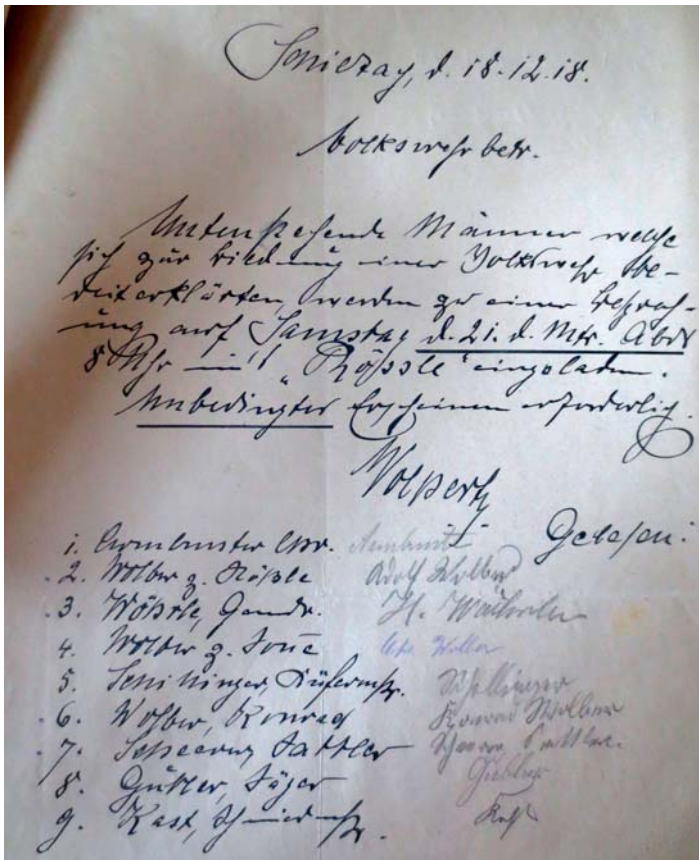 Schiltach, d. 18.12.18.
Volkswehr betr.
Untenstehende Männer welche
sich zur Bildung einer Volkswehr be-
reiterklärten, werden zu einer Besprech-
ung auf Samstag d. 21. d. Mts. Abds
8 Uhr in's "Rössle" eingeladen.
Unbedingtes Erscheinen erforderlich.
Wolpert
Gelesen:
1. Armbruster Chr. Armbruster
2. Wolber z. Rößle Adolf Wolber
3. Wöhrle, Gemdr. H. Wöhrle
4. Wolber z. Sonne Wolber
5. Schillinger, Küfermstr. Schillinger
6. Wolber, Konrad Konrad Wolber
7. Scheerer, Sattler Scheerer, Sattler.
8. Säger
9. Kast, Schmiedmstr. Kast